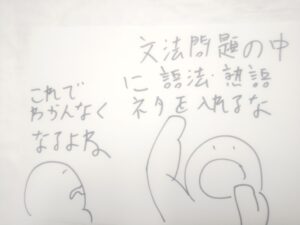 文法問題の中
に語法・熟語
ネタを入れるな
これで
わかんなく
なるよね